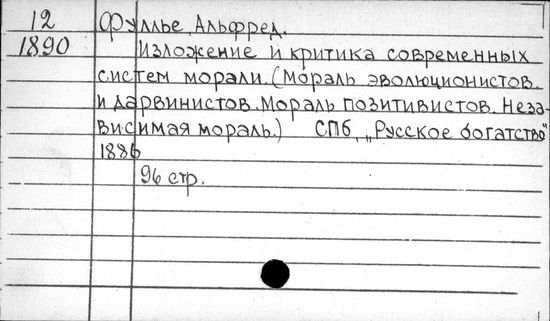 12 Фуллье, Альфред.
1890 Изложение и критика современных
систем морали. (Мораль эволюционистов
и дарвинистов. Мораль позитивистов. Неза-
висимая мораль.) СПб, „Русское богатство"
1886
96 стр.